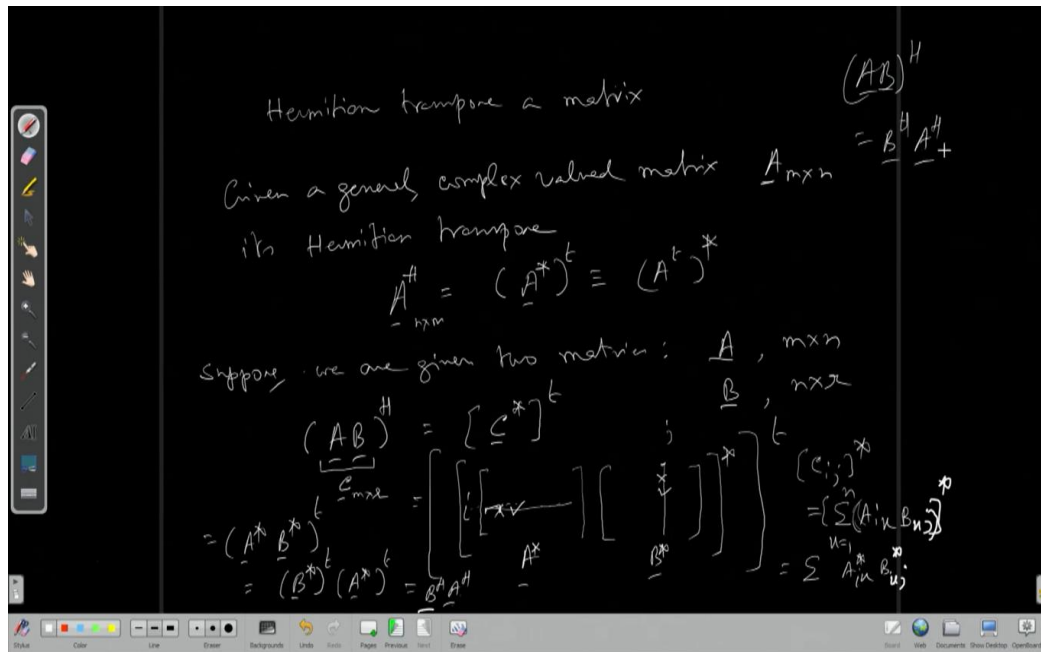 Hermition transpose a matrix
(AB)^H
= B^H A^H
Given a general, complex valued matrix A m×n
its Hermition transpose
A^H n×m = (A^*)^t ≡ (A^t)^*
Suppose, we are given two matrices : A , m×n
B , n×r
(AB)^H = [C^*]^t
C m×r
= [[i [ ] [ j ]]^*]^t
A^* B^*
[C_ij]^*
= {Σ_{k=1}^n (A_ik B_kj)}^*
= Σ A^*_ik B^*_kj
= (A^* B^*)^t
= (B^*)^t (A^*)^t = B^H A^H
Stylus
Color
Line
Eraser
Backgrounds
Undo
Redo
Pages
Previous
Next
Erase
Board
Web
Documents
Show Desktop
OpenBoard